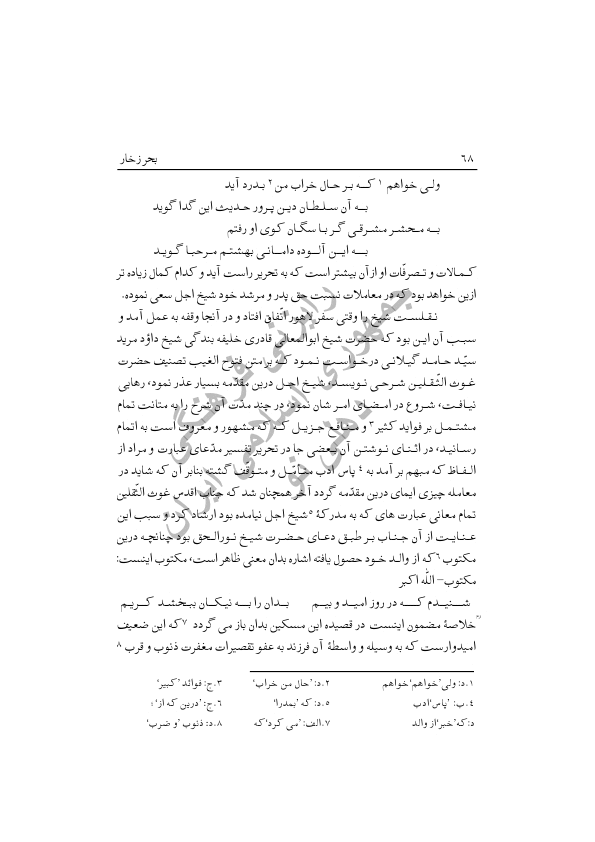 ٦٨ بحر زخار
ولی خواهم ١ کـه بر حال خراب من ٢ بدرد آید
به آن سلطان دین پرور حدیث این گدا گوید
به محشر مشرقی گر با سگان کوی او رفتم
به این آلوده دامانی بهشتم مرحبا گوید
کمالات و تصرفّات او ازآن بیشتر است که به تحریر راست آید و کدام کمال زیاده تر
ازین خواهد بود که در معاملات نسبت حق پدر و مرشد خود شیخ اجل سعی نموده.
نقلست شیخ را وقتی سفر لاهور اتّفاق افتاد و در آنجا وقفه به عمل آمد و
سبب آن این بود که حضرت شیخ ابوالمعالی قادری خلیفه بندگی شیخ داؤد مرید
سیّد حامد گیلانی درخواست نمود که برامتن فتوح الغیب تصنیف حضرت
غوث الثّقلین شرحی نویسد، شیخ اجل درین مقدّمه بسیار عذر نمود، رهایی
نیافت، شروع در امضای امر شان نمود، در چند مدّت آن شرح را به متانت تمام
مشتمل بر فواید کثیر ٣ و منافع جزیل که که مشهور و معروف است به اتمام
رسانید، در اثنای نوشتن آن بعضی جا در تحریر تفسیر مدّعای عبارت و مراد از
الفاظ که مبهم بر آمد به ٤ پاس ادب متأمّل و متوقّف گشته بنابر آن که شاید در
معامله چیزی ایمای درین مقدّمه گردد آخر همچنان شد که جناب اقدس غوث الثّقلین
تمام معانی عبارت های که به مدرکهٔ ٥ شیخ اجل نیامده بود ارشاد کرد و سبب این
عنایت از آن جناب بر طبق دعای حضرت شیخ نورالحق بود چنانچه درین
مکتوب ٦ که از والد خود حصول یافته اشاره بدان معنی ظاهر است، مکتوب اینست:
مکتوب- اللّه اکبر
شنیدم کـه در روز امید و بیم بدان را به نیکان ببخشد کریم
خلاصهٔ مضمون اینست در قصیده این مسکین بدان باز می گردد ٧ که این ضعیف
امیدوارست که به وسیله و واسطهٔ آن فرزند به عفو تقصیرات مغفرت ذنوب و قرب ٨
١.د: ولی’خواهم‘خواهم ٢.د: ’حال من خراب‘ ٣.ج: فوائد ’کبیر‘
٤.ب: ’پاس‘ادب ٥.د: که ’بمدرا‘ ٦.ج: ’درین که از‘؛
د:که’خبر‘از والد ٧.الف: ’می کرد‘که ٨.د: ذنوب ’و ضرب‘